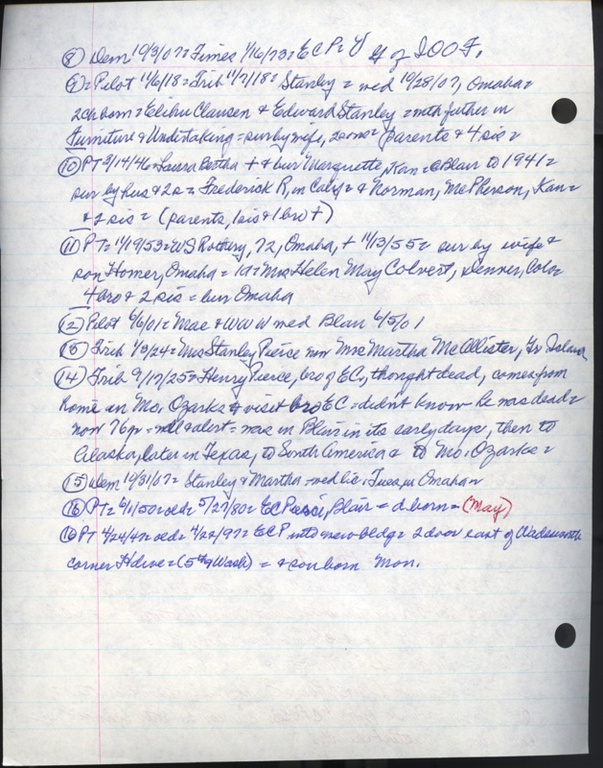 ⑧ Dem 10/3/07 = Times 1/16/73 = E C P = of IOOF.
⑨ = Pilot 11/6/18 = Trib 11/7/18 = Stanley = wed 10/28/07, Omaha =
2 ch born = Elihu Clausen & Edward Stanley = with father in
Furniture & Undertaking = sur by wife, 2 sons = (parents & 4 sis =
⑩ PT 3/14/46 = Laura Bertha + & bur Marquette, Kan = Blair to 1941 =
sur by hus & 2 s = Frederick R, in Calif = & Norman, McPherson, Kan =
& 2 sis = (parents, 1 sis & 1 bro +)
⑪ PT = 11/19/53 = WS Rothery, 72, Omaha, + 11/13/55 = sur by wife &
son Homer, Omaha = 1d = Mrs Helen May Colvert, Denver, Colo =
4 bro & 2 sis = bur Omaha
⑫ Pilot 6/6/01 = Mae & WWW wed Blair 6/5/01
⑬ Trib 1/3/24 = Mrs Stanley Pierce now Mrs Martha McAllister, Gr Island
⑭ Trib 9/17/25 = Henry Pierce, bro of EC, thought dead, comes from
home in Mo. Ozarks to visit bro EC = didn't know he was dead =
now 76y = well & alert = was in Blair in its early days, then to
Alaska, later in Texas, to South America & to Mo. Ozarks =
⑮ Dem 10/31/07 = Stanley & Martha = wed lic = Tues in Omaha =
⑯ PT = 6/1/50 = old = 5/27/80 = EC Pierce, Blair = d born = (May)
⑯ PT 4/24/47 = old = 4/22/97 = EC P into new bldg = 2 door east of Wadsworth
corner Hdwe = (5th & Wash) = & son born Mon.